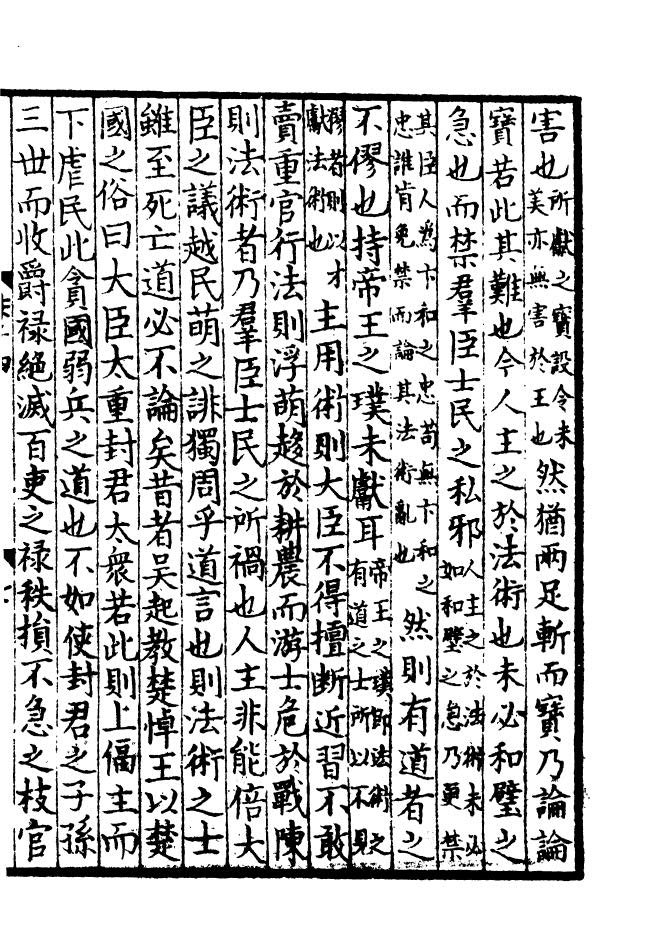 害也所獻之寶設令未美亦無害於王也然猶兩足斬而寶乃論論
寶若此其難也今人主之於法術也未必和璧之
急也而禁羣臣士民之私邪人主之於法術未必如和璧之急乃更禁
其臣人爲卞和之忠苟無卞和之忠誰肯免禁而論其法術亂也然則有道者之
不僇也持帝王之璞未獻耳帝王之璞即法術之有道之士所以不見
僇者則以才獻法術也主用術則大臣不得擅斷近習不敢
賣重官行法則浮萌趍於耕農而游士危於戰陳
則法術者乃羣臣士民之所禍也人主非能倍大
臣之議越民萌之誹獨周乎道言也則法術之士
雖至死亡道必不論矣昔者吳起教楚悼王以楚
國之俗曰大臣太重封君太衆若此則上偪主而
下虐民此貪國弱兵之道也不如使封君之子孫
三世而收爵禄絕滅百吏之禄秩損不急之枝官